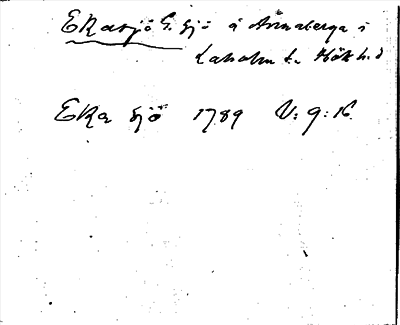 Ekasjö G. sjö å Årnaberga i
Laholm l. Hök h.d
Eka sjö 1789 V: 9: 16.